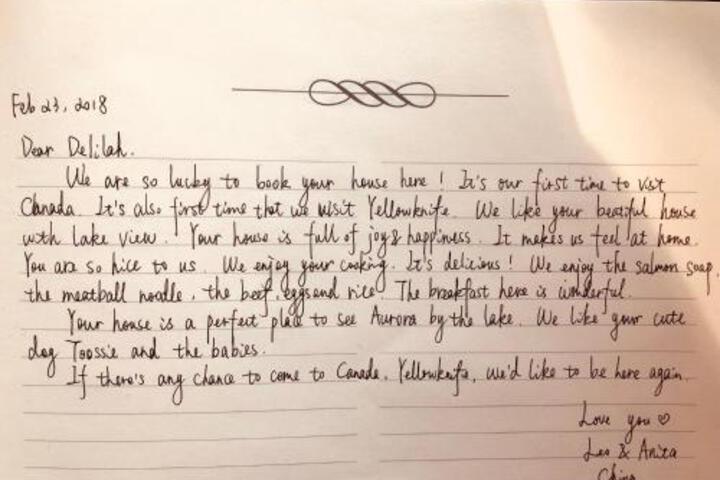 Feb 23, 2018
Dear Delilah.
We are so lucky to book your house here! It's our first time to visit
Canada. It's also first time that we visit Yellowknife. We like your beatiful house
with lake view. Your house is full of joy & happiness. It makes us feel at home.
You are so nice to us. We enjoy your cooking. It's delicious! We enjoy the salmon soap,
the meatball noodle, the beef, eggs and rice. The breakfast here is wonderful.
Your house is a perfect place to see Aurora by the lake. We like your cute
dog Toossie and the babies.
If there's any chance to come to Canada, Yellowknife, we'd like to be here again.
Love you ♡
Leo & Anita
China